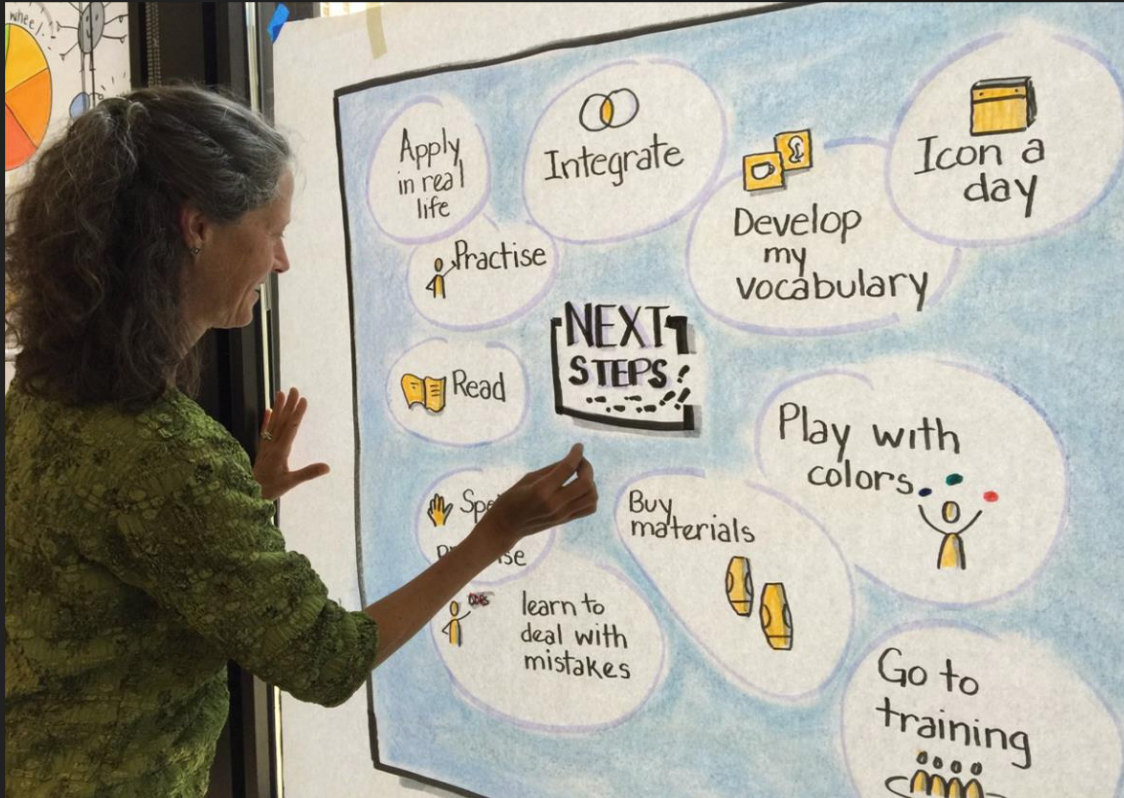 wheel
Apply
in real
life
Integrate
Icon a
day
Develop
my
vocabulary
Practise
NEXT
STEPS!
Read
Play with
colors
Buy
materials
learn to
deal with
mistakes
Go to
training